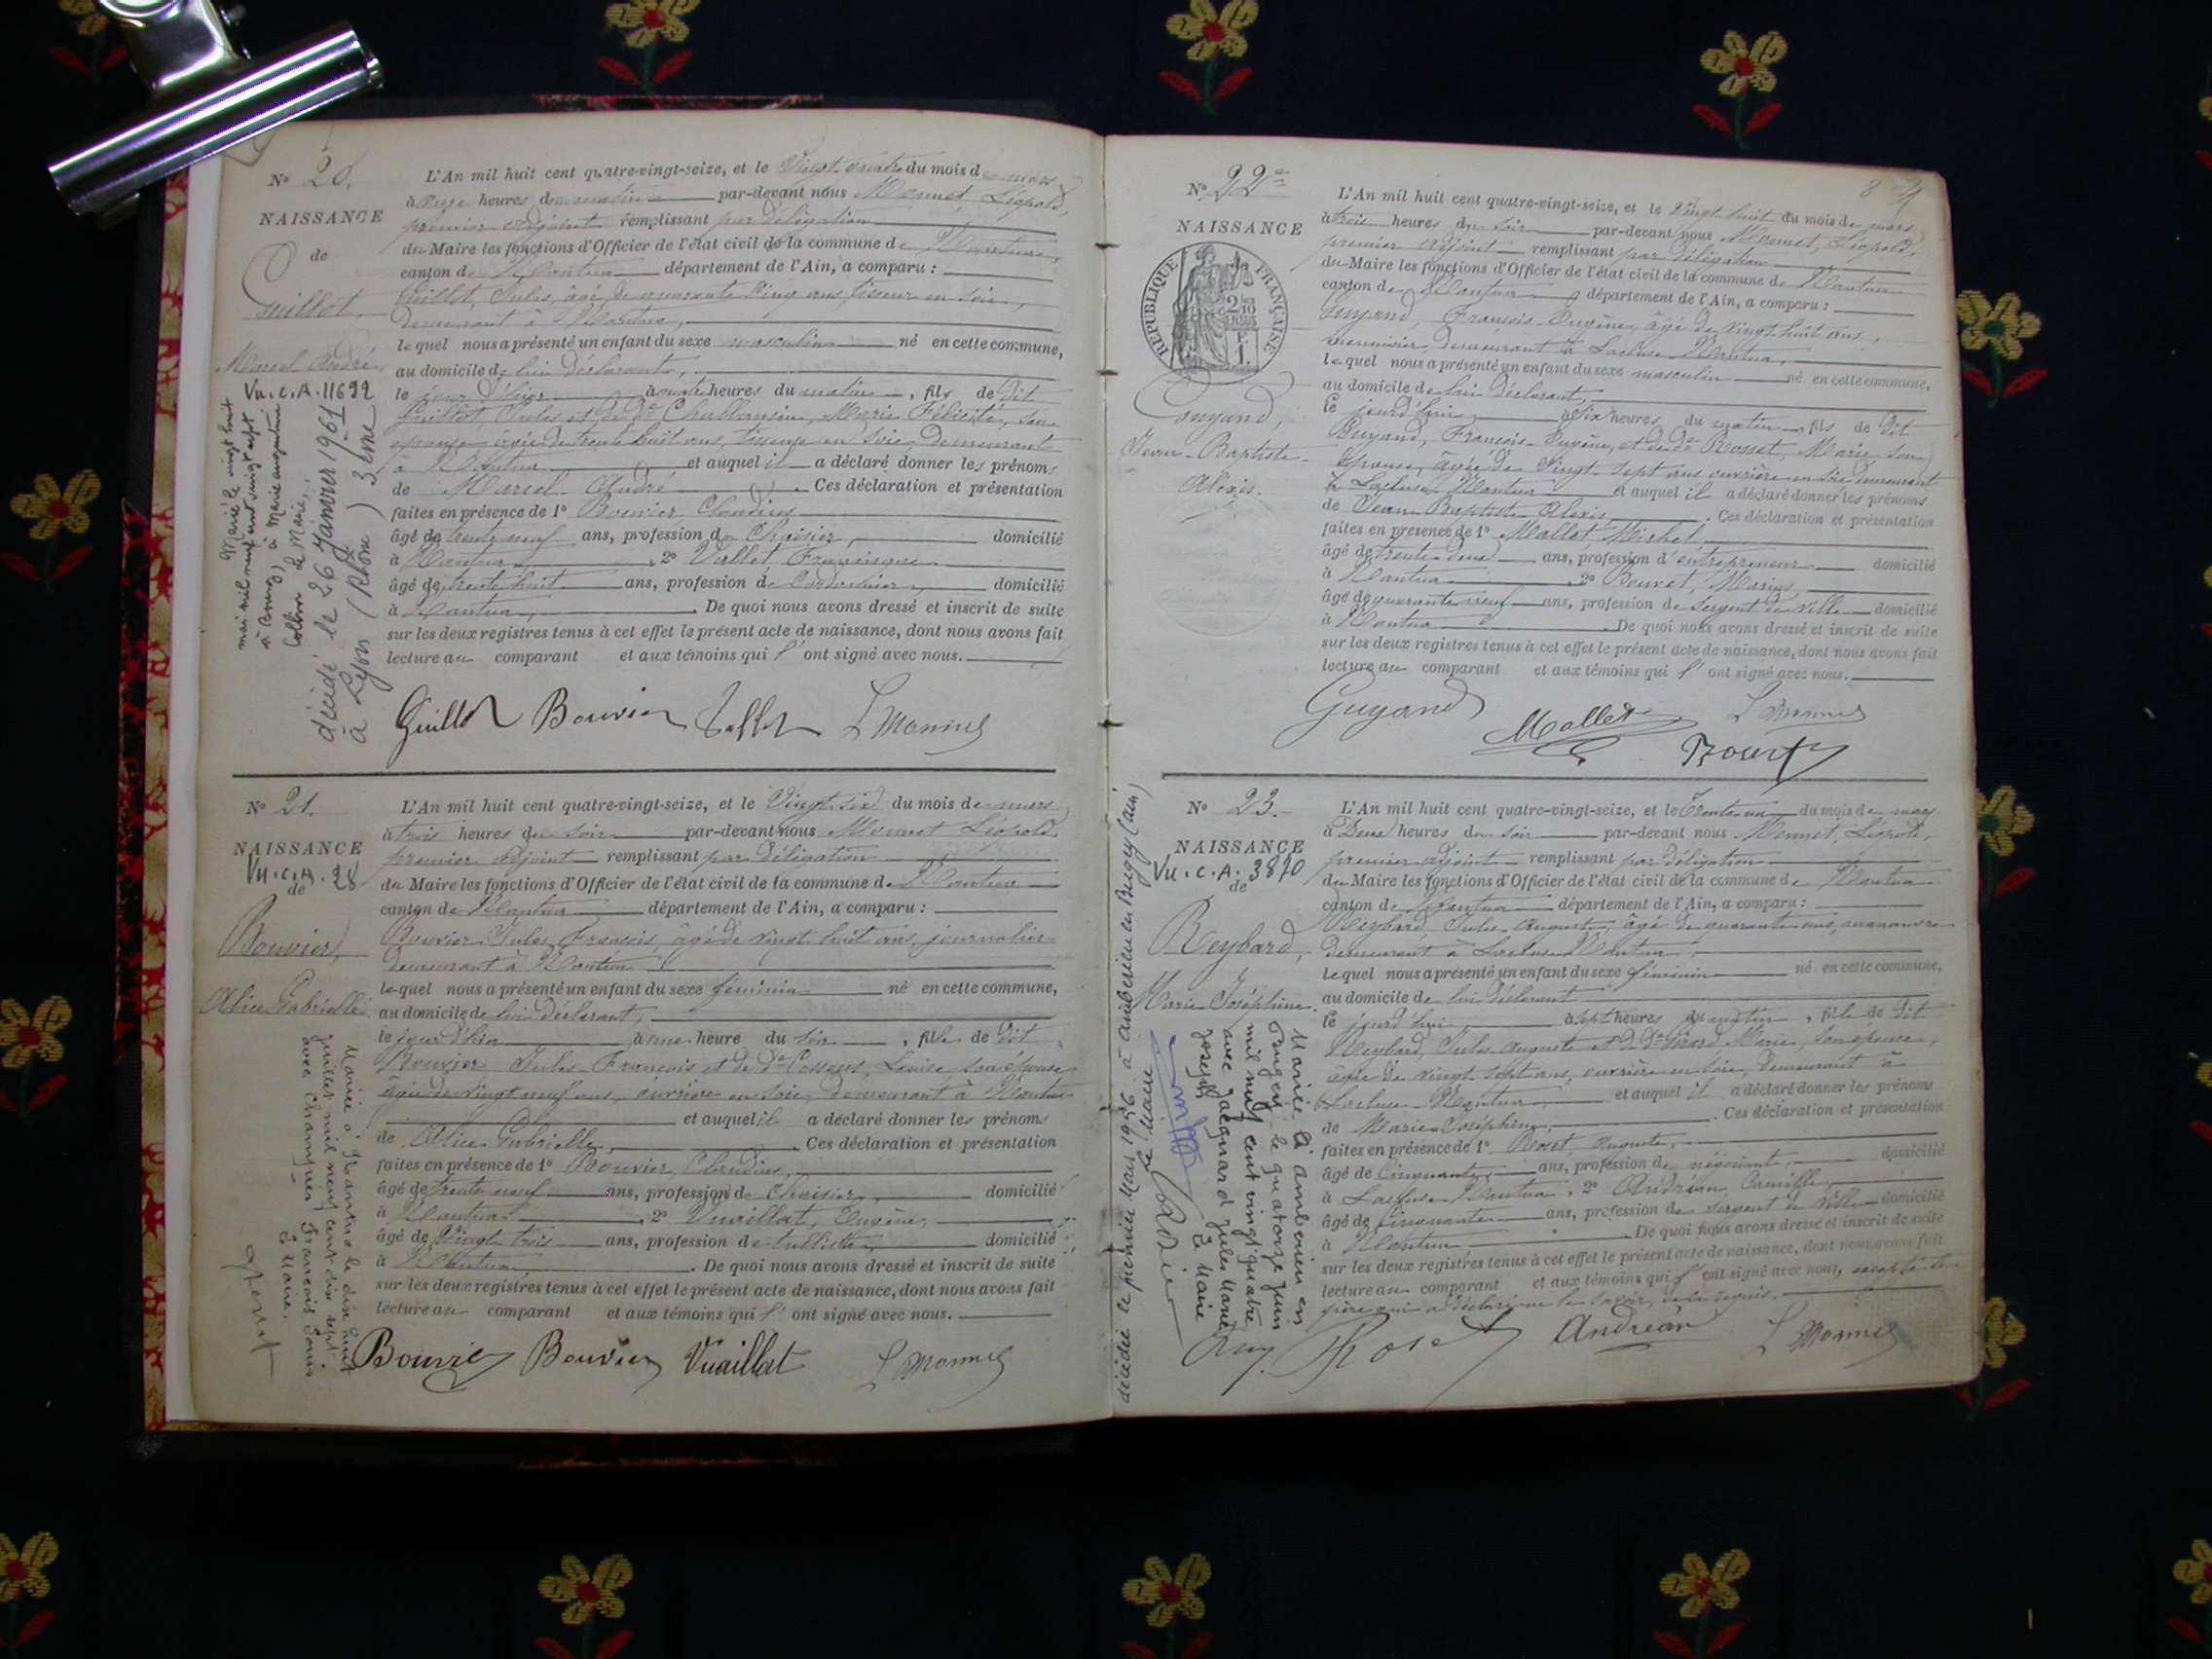 N° 20.
NAISSANCE
de
Guillot
Marcel André
Vu.C.A. 11692
Marié le vingt huit
mai mil neuf cent vingt sept
à Bourg, à Marie augustine
le Maire,
décédé le 26 Janvier 1961
à Lyon (Rhône) 3ème
L'An mil huit cent quatre-vingt-seize, et le Vingt quatre du mois de mars
à onze heures du matin par-devant nous Monnet, Léopold,
premier adjoint remplissant par délégation
du Maire les fonctions d'Officier de l'état civil de la commune de Nantua,
canton de Nantua département de l'Ain, a comparu :
Guillot, Jules, âgé de quarante cinq ans, tisseur en soie,
demeurant à Nantua,
lequel nous a présenté un enfant du sexe masculin né en cette commune,
au domicile de lui déclarant,
le jour d'hier à heures du matin, fils de dit
Guillot, Jules et de de Marie Félicité, son
épouse âgée de trente huit ans, tisseuse en soie demeurant
à Nantua et auquel il a déclaré donner les prénoms
de Marcel André. Ces déclaration et présentation
faites en présence de 1° Bouvier Claudius
âgé de trente neuf ans, profession de Chaisier, domicilié
à Nantua, 2° Vallet, Françisque
âgé de trente huit ans, profession de Cordonnier, domicilié
à Nantua, De quoi nous avons dressé et inscrit de suite
sur les deux registres tenus à cet effet le présent acte de naissance, dont nous avons fait
lecture au comparant et aux témoins qui l'ont signé avec nous.
Guillot Bouvier Vallet L Monnet
N° 21.
NAISSANCE
Vu.C.A. 28
de
Bouvier,
Alice Gabrielle
Mariée à Nantua le dix huit
juillet mil neuf cent dix sept
avec Champier François Louis
Le Maire,
L'An mil huit cent quatre-vingt-seize, et le Vingt six du mois de mars
à trois heures du soir par-devant nous Monnet Léopold,
premier adjoint remplissant par délégation
du Maire les fonctions d'Officier de l'état civil de la commune de Nantua
canton de Nantua département de l'Ain, a comparu :
Bouvier Jules François, âgé de vingt huit ans, journalier
demeurant à Nantua
lequel nous a présenté un enfant du sexe féminin né en cette commune,
au domicile de lui déclarant,
le jour d'hier à une heure du soir, fille de dit
Bouvier Jules François et de de Cossens, Louise son épouse
âgée de vingt neuf ans, ouvrière en soie, demeurant à Nantua
et auquel il a déclaré donner les prénoms
de Alice Gabrielle, Ces déclaration et présentation
faites en présence de 1° Bouvier, Claudius,
âgé de trente neuf ans, profession de Chaisier, domicilié
à Nantua, 2° Vuaillat, Eugène,
âgé de Vingt trois ans, profession de domicilié
à Nantua. De quoi nous avons dressé et inscrit de suite
sur les deux registres tenus à cet effet le présent acte de naissance, dont nous avons fait
lecture au comparant et aux témoins qui l'ont signé avec nous.
Bouvier Bouvier Vuaillat L Monnet
8
N° 22
NAISSANCE
RÉPUBLIQUE FRANÇAISE
Guyand,
Jean-Baptiste-
Alexis.
L'An mil huit cent quatre-vingt-seize, et le Vingt huit du mois de mars
à trois heures du soir par-devant nous Monnet, Léopold,
premier adjoint remplissant par délégation
du Maire les fonctions d'Officier de l'état civil de la commune de Nantua
canton de Nantua département de l'Ain, a comparu :
Guyand, François-Eugène, âgé de vingt huit ans,
menuisier, demeurant à Lacluse Nantua,
lequel nous a présenté un enfant du sexe masculin né en cette commune,
au domicile de lui déclarant,
le jourd'hui à Six heures du matin fils de dit
Guyand, François-Eugène, et de de Rosset, Marie son
épouse, âgée de Vingt sept ans ouvrière en soie demeurant
à Lacluse Nantua et auquel il a déclaré donner les prénoms
de Jean Baptiste Alexis. Ces déclaration et présentation
faites en présence de 1° Mallet Michel
âgé de trente deux ans, profession d'entrepreneur domicilié
à Nantua 2° Bouvet, Marius,
âgé de quarante neuf ans, profession de Sergent de Ville domicilié
à Nantua. De quoi nous avons dressé et inscrit de suite
sur les deux registres tenus à cet effet le présent acte de naissance, dont nous avons fait
lecture au comparant et aux témoins qui l'ont signé avec nous.
Guyand Mallet L Monnet
N° 23.
NAISSANCE
Vu.C.A. 3870
de
Reybard,
Marie Joséphine.
Mariée à Ambérieu en
Bugey le quatorze juin
mil neuf cent vingt quatre
avec Jacquard Jules Marie
Joseph
Le Maire
décédée le premier Mars 1956 à ambérieu en Bugey (ain)
Le Maire
L'An mil huit cent quatre-vingt-seize, et le Trente un du mois de mars
à Deux heures du soir par-devant nous Monnet, Léopold,
premier adjoint remplissant par délégation
du Maire les fonctions d'Officier de l'état civil de la commune de Nantua
canton de Nantua département de l'Ain, a comparu :
Reybard, Jules Auguste, âgé de quarante ans, manœuvre
demeurant à Lacluse Nantua
lequel nous a présenté un enfant du sexe féminin né en cette commune,
au domicile de lui déclarant
le jourd'hui à sept heures du matin, fille de dit
Reybard, Jules Auguste et de de Girod Marie, son épouse,
âgée de vingt sept ans, ouvrière en soie, demeurant à
Lacluse Nantua et auquel il a déclaré donner les prénoms
de Marie Joséphine, Ces déclaration et présentation
faites en présence de 1° Roset, Auguste,
âgé de Cinquante ans, profession de négociant, domicilié
à Lacluse Nantua, 2° Andréan, Camille,
âgé de Cinquante ans, profession de sergent de Ville domicilié
à Nantua. De quoi nous avons dressé et inscrit de suite
sur les deux registres tenus à cet effet le présent acte de naissance, dont nous avons fait
lecture au comparant et aux témoins qui l'ont signé avec nous, excepté le
père qui a déclaré ne le savoir, de ce requis.
Roset Andréan L Monnet